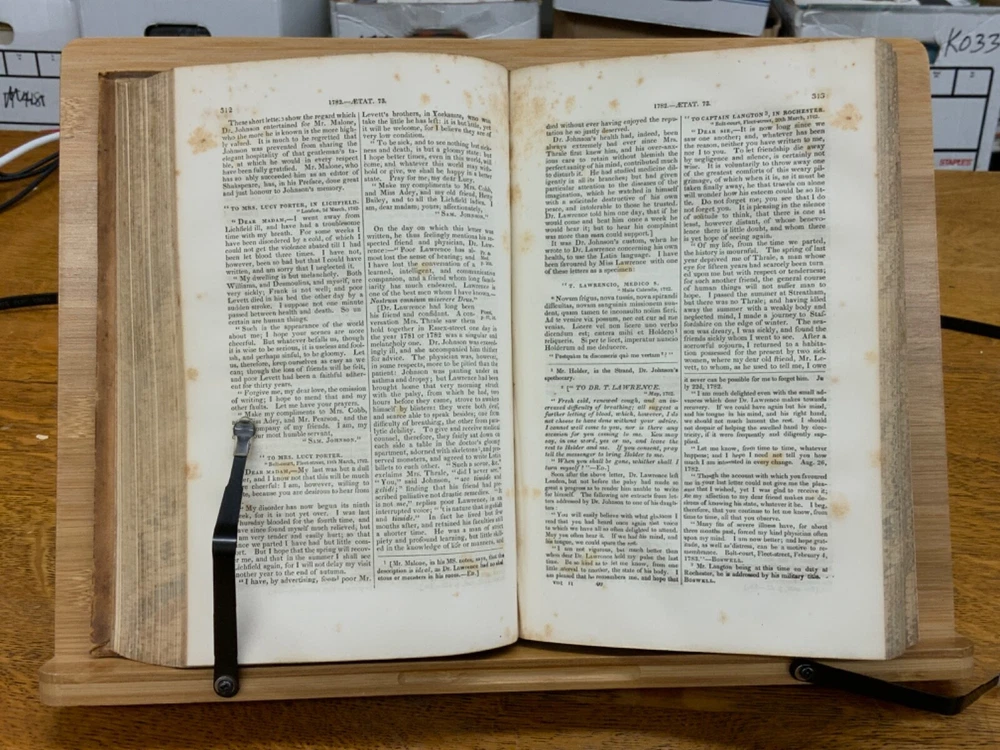 312
1782.—ÆTAT. 73.
These short letters show the regard which
Dr. Johnson entertained for Mr. Malone,
who the more he is known is the more high-
ly valued. It is much to be regretted that
Johnson was prevented from sharing the
elegant hospitality of that gentleman's ta-
ble, at which he would in every respect
have been fully gratified. Mr. Malone, who
has so ably succeeded him as an editor of
Shakspeare, has, in his Preface, done great
and just honour to Johnson's memory.
"TO MRS. LUCY PORTER, IN LICHFIELD.
"London, 2d March, 1782.
"DEAR MADAM,—I went away from
Lichfield ill, and have had a troublesome
time with my breath. For some weeks I
have been disordered by a cold, of which I
could not get the violence abated till I had
been let blood three times. I have not,
however, been so bad but that I could have
written, and am sorry that I neglected it.
"My dwelling is but melancholy. Both
Williams, and Desmoulins, and myself, are
very sickly; Frank is not well; and poor
Levett died in his bed the other day by a
sudden stroke. I suppose not one minute
passed between health and death. So un-
certain are human things.
"Such is the appearance of the world
about me; I hope your scenes are more
cheerful. But whatever befalls us, though
it is wise to be serious, it is useless and fool-
ish, and perhaps sinful, to be gloomy. Let
us, therefore, keep ourselves as easy as we
can; though the loss of friends will be felt,
and poor Levett had been a faithful adher-
ent for thirty years.
"Forgive me, my dear love, the omission
of writing; I hope to mend that and my
other faults. Let me have your prayers.
"Make my compliments to Mrs. Cobb,
Miss Adey, and Mr. Pearson, and the
company of my friends. I am, my
most humble servant,
"SAM. JOHNSON."
"TO MRS. LUCY PORTER.
"Bolt-court, Fleet-street, 19th March, 1782.
"DEAR MADAM,—My last was but a dull
and I know not that this will be much
cheerful: I am, however, willing to
because you are desirous to hear from
"My disorder has now begun its ninth
week, for it is not yet over. I was last
Thursday blooded for the fourth time, and
have since found myself much relieved, but
am very tender and easily hurt; so that
since we parted I have had but little com-
fort. But I hope that the spring will recov-
er me, and that in the summer I shall see
Lichfield again, for I will not delay my visit
another year to the end of autumn.
"I have, by advertising, found poor Mr.
Levett's brothers, in Yorkshire, who will
take the little he has left: it is but little, yet
it will be welcome, for I believe they are of
very low condition.
"To be sick, and to see nothing but sick-
ness and death, is but a gloomy state: but
I hope better times, even in this world, will
come, and whatever this world may with-
hold or give, we shall be happy in a better
state. Pray for me, my dear Lucy.
"Make my compliments to Mrs. Cobb,
and Miss Adey, and my old friend, Hetty
Bailey, and to all the Lichfield ladies. I
am, dear madam, yours, affectionately,
"SAM. JOHNSON."
On the day on which this letter was
written, he thus feelingly mentions his re-
spected friend and physician, Dr. Law-
rence:—"Poor Lawrence has al-
most lost the sense of hearing; and
I have lost the conversation of a
learned, intelligent, and communicative
companion, and a friend whom long famil-
iarity has much endeared. Lawrence is
one of the best men whom I have known.—
Nostrum omnium miserere Deus."
[Dr. Lawrence had long been
his friend and confidant. A con-
versation Mrs. Thrale saw them
hold together in Essex-street one day in
the year 1781 or 1782 was a singular and
melancholy one. Dr. Johnson was exceed-
ingly ill, and she accompanied him thither
for advice. The physician was, however,
in some respects, more to be pitied than the
patient: Johnson was panting under an
asthma and dropsy; but Lawrence had been
brought home that very morning struck
with the palsy, from which he had, two
hours before they came, strove to awaken
himself by blisters: they were both deaf,
and scarce able to speak besides; one from
difficulty of breathing, the other from para-
lytic debility. To give and receive medical
counsel, therefore, they fairly sat down on
each side a table in the doctor's gloomy
apartment, adorned with skeletons, and pre-
served monsters, and agreed to write Latin
billets to each other. "Such a scene,
exclaims Mrs. Thrale, "did I never see."
"You," said Johnson, "are timidè and
gelidè;" finding that his friend had pre-
scribed palliative not drastic remedies. "It
is not me," replies poor Lawrence, in an
interrupted voice; "'t is nature that is gelidè
and timidè." In fact he lived but few
months after, and retained his faculties still
a shorter time. He was a man of strict
piety and profound learning, but little skill-
ed in the knowledge of life or manners, and
1 [Mr. Malone, in his MS. notes, says, that the
description is ideal, as Dr. Lawrence had no skel-
etons or monsters in his room.—ED.]
1782.—ÆTAT. 73.
313
died without ever having enjoyed the repu-
tation he so justly deserved.
Dr. Johnson's health had, indeed, been
always extremely bad ever since Mrs.
Thrale first knew him, and his over-anx-
ious care to retain without blemish the
perfect sanity of his mind, contributed much
to disturb it. He had studied medicine dil-
igently in all its branches; but had given
particular attention to the diseases of the
imagination, which he watched in himself
with a solicitude destructive of his own
peace, and intolerable to those he trusted.
Dr. Lawrence told him one day, that if he
would come and beat him once a week he
would bear it; but to hear his complaint
was more than man could support.]
It was Dr. Johnson's custom, when he
wrote to Dr. Lawrence concerning his own
health, to use the Latin language. I have
been favoured by Miss Lawrence with one
of these letters as a specimen:
"T. LAWRENCIO, MEDICO S.
"Maiis Calendis, 1782.
"Novum frigus, nova tussis, nova spirandi
difficultas, novam sanguinis missionem sua-
dent, quam tamen te inconsulto nolim fieri.
Ad te venire vix possum, nec est cur ad me
venias. Licere vel non licere uno verbo
dicendum est; cætera mihi et Holdero 1
reliqueris. Si per te licet, imperatur nuncio
Holderum ad me deducere.
"Postquàm tu discesseris quò me vertam?"—
1 Mr. Holder, in the Strand, Dr. Johnson's
apothecary.
["TO DR. T. LAWRENCE.
"May, 1782.
"Fresh cold, renewed cough, and an in-
creased difficulty of breathing; all suggest a
further letting of blood, which, however, I do
not choose to have done without your advice.
I cannot well come to you, nor is there any
occasion for your coming to me. You may
say, in one word, yes or no, and leave the
rest to Holder and me. If you consent, pray
tell the messenger to bring Holder to me.
"When you shall be gone, whither shall I
turn myself?"—ED.]
Soon after the above letter, Dr. Lawrence left
London, but not before the palsy had made so
great a progress as to render him unable to write
for himself. The following are extracts from let-
ters addressed by Dr. Johnson to one of his daugh-
ters:
"You will easily believe with what gladness I
read that you had heard once again that voice
to which we have all so often delighted to attend.
May you often hear it. If we had his mind, and
his tongue, we could spare the rest.
"I am not vigorous, but much better than
when dear Dr. Lawrence held my pulse the last
time. Be so kind as to let me know, from one
little interval to another, the state of his body. I
am pleased that he remembers me, and hope that
VOL. II 40
"TO CAPTAIN LANGTON 2, IN ROCHESTER.
"Bolt-court, Fleet-street, 20th March, 1782.
"DEAR SIR,—It is now long since we
saw one another; and, whatever has been
the reason, neither you have written to me,
nor I to you. To let friendship die away
by negligence and silence, is certainly not
wise. It is voluntarily to throw away one
of the greatest comforts of this weary pil-
grimage, of which when it is, as it must be
taken finally away, he that travels on alone
will wonder how his esteem could be so lit-
tle. Do not forget me; you see that I do
not forget you. It is pleasing in the silence
of solitude to think, that there is one at
least, however distant, of whose benevo-
lence there is little doubt, and whom there
is yet hope of seeing again.
"Of my life, from the time we parted,
the history is mournful. The spring of last
year deprived me of Thrale, a man whose
eye for fifteen years had scarcely been turn-
ed upon me but with respect or tenderness;
for such another friend, the general course
of human things will not suffer man to
hope. I passed the summer at Streatham,
but there was no Thrale; and having idled
away the summer with a weakly body and
neglected mind, I made a journey to Staf-
fordshire on the edge of winter. The sea-
son was dreary, I was sickly, and found the
friends sickly whom I went to see. After a
sorrowful sojourn, I returned to a habita-
tion possessed for the present by two sick
women, where my dear old friend, Mr. Le-
vett, to whom, as he used to tell me, I owe
it never can be possible for me to forget him. Ju
ly 22d, 1782."
"I am much delighted even with the small ad-
vances which dear Dr. Lawrence makes towards
recovery. If we could have again but his mind,
and his tongue in his mind, and his right hand,
we should not much lament the rest. I should
not despair of helping the swelled hand by elec-
tricity, if it were frequently and diligently sup-
plied.
"Let me know, from time to time, whatever
happens; and I hope I need not tell you how
much I am interested in every change. Aug. 26,
1782."
"Though the account with which you favoured
me in your last letter could not give me the plea-
sure that I wished, yet I was glad to receive it;
for my affection to my dear friend makes me de-
sirous of knowing his state, whatever it be. I beg,
therefore, that you continue to let me know, from
time to time, all that you observe.
"Many fits of severe illness have, for about
three months past, forced my kind physician often
upon my mind. I am now better; and hope grat-
itude, as well as distress, can be a motive to re-
membrance. Bolt-court, Fleet-street, February 4,
1783."—BOSWELL.
2 Mr. Langton being at this time on duty at
Rochester, he is addressed by his military title.—
BOSWELL.
K033
STAPLES